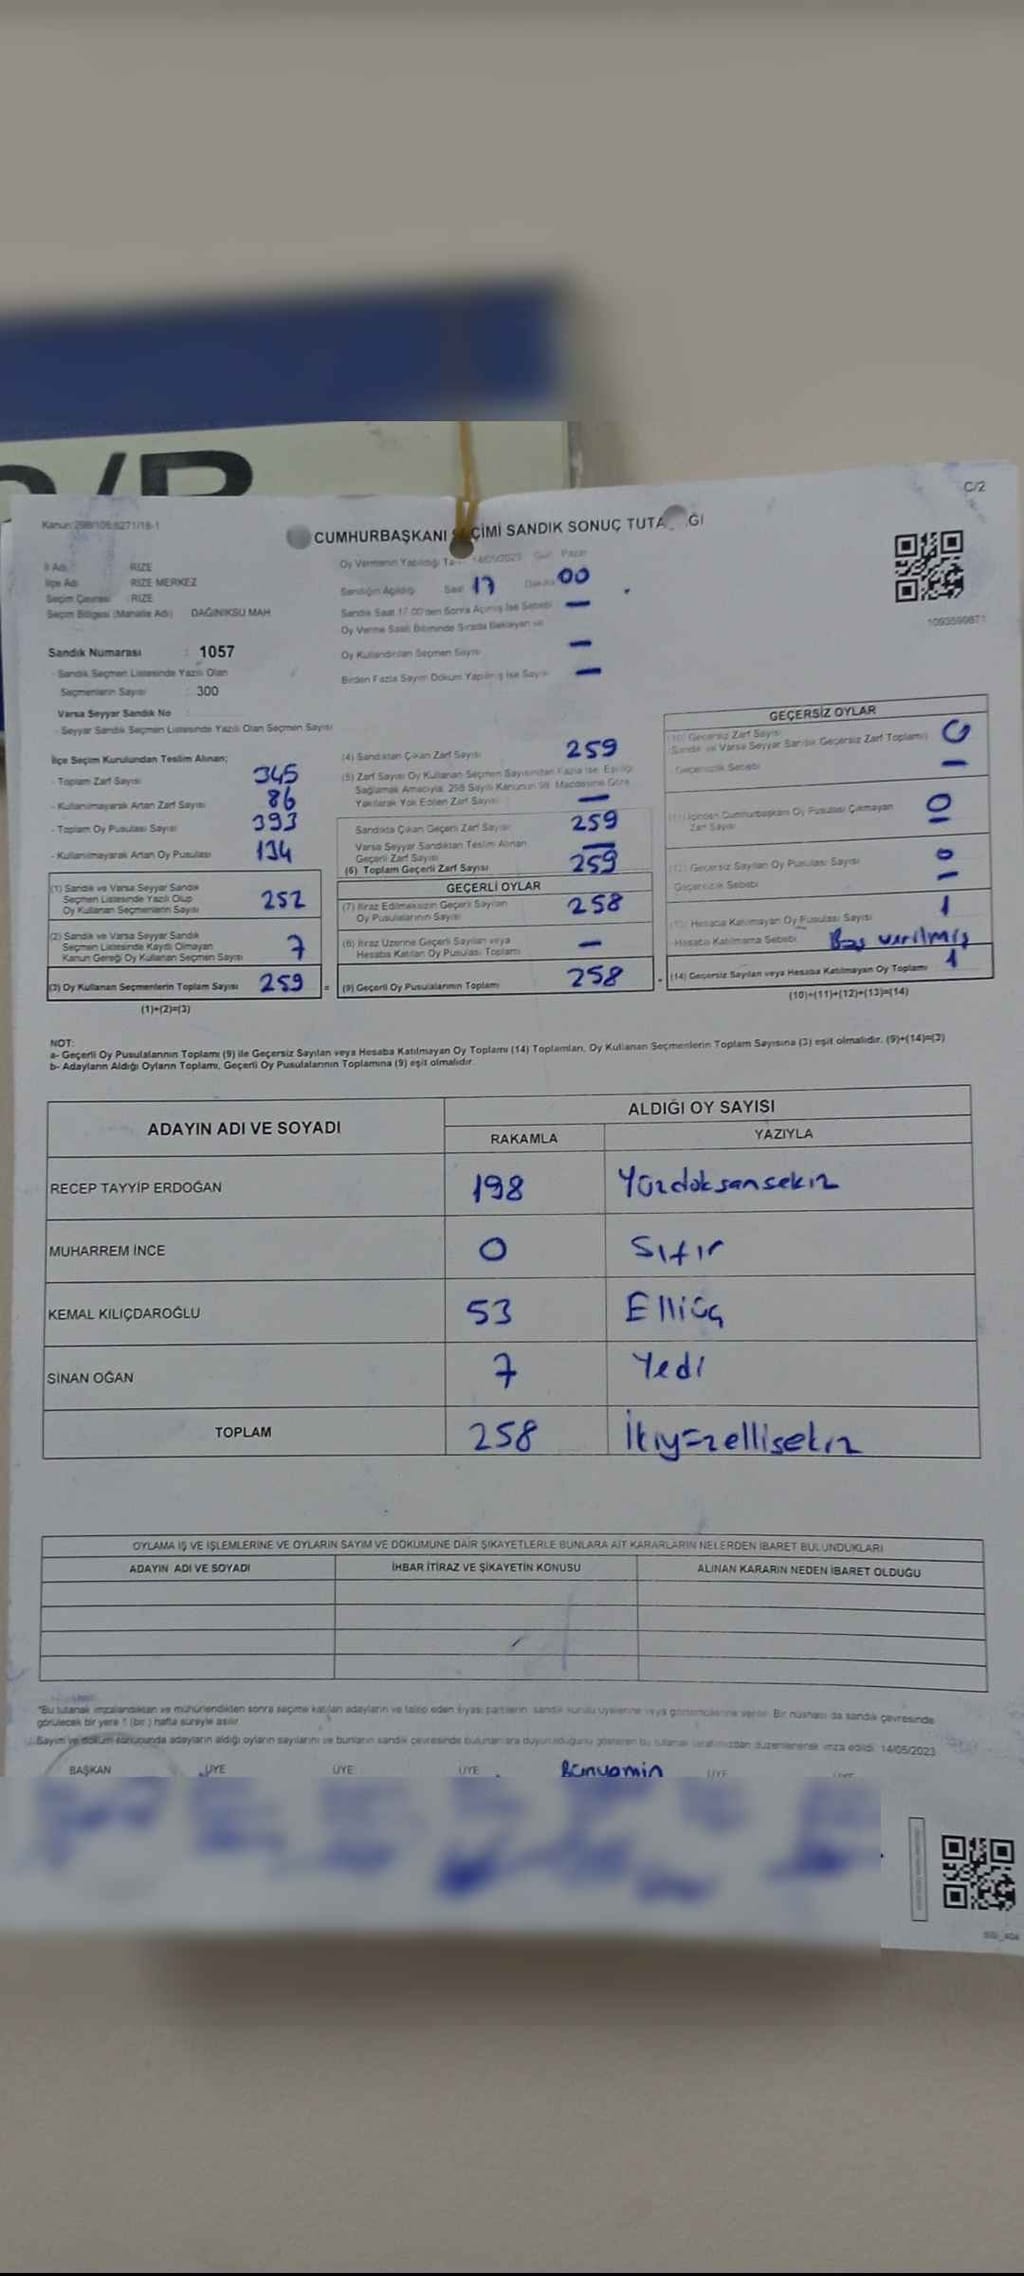 C/2
Kanun: 298/105;6271/18-1
CUMHURBAŞKANI SEÇİMİ SANDIK SONUÇ TUTANAĞI
İl Adı : RİZE
İlçe Adı : RİZE MERKEZ
Seçim Çevresi : RİZE
Seçim Bölgesi (Mahalle Adı) : DAĞINIKSU MAH
Sandık Numarası : 1057
- Sandık Seçmen Listesinde Yazılı Olan
Seçmenlerin Sayısı : 300
Varsa Seyyar Sandık No
- Seyyar Sandık Seçmen Listesinde Yazılı Olan Seçmen Sayısı
Oy Vermenin Yapıldığı 14/05/2023 Gün: Pazar
Sandığın Açıldığı Saat 17 Dakika 00
Sandık Saat 17:00'den Sonra Açılmış İse Sebebi —
Oy Verme Saati Bitiminde Sırada Bekleyen ve
Oy Kullandırılan Seçmen Sayısı —
Birden Fazla Sayım Döküm Yapılmış İse Sayısı —
1093599871
İlçe Seçim Kurulundan Teslim Alınan;
- Toplam Zarf Sayısı 345
- Kullanılmayarak Artan Zarf Sayısı 86
- Toplam Oy Pusulası Sayısı 393
- Kullanılmayarak Artan Oy Pusulası 134
(1) Sandık ve Varsa Seyyar Sandık
Seçmen Listesinde Yazılı Olup
Oy Kullanan Seçmenlerin Sayısı 252
(2) Sandık ve Varsa Seyyar Sandık
Seçmen Listesinde Kaydı Olmayan
Kanun Gereği Oy Kullanan Seçmen Sayısı 7
(3) Oy Kullanan Seçmenlerin Toplam Sayısı 259 =
(1)+(2)=(3)
(4) Sandıktan Çıkan Zarf Sayısı 259
(5) Zarf Sayısı Oy Kullanan Seçmen Sayısından Fazla İse, Eşitliği
Sağlamak Amacıyla, 298 Sayılı Kanunun 98. Maddesine Göre
Yakılarak Yok Edilen Zarf Sayısı —
Sandıkta Çıkan Geçerli Zarf Sayısı 259
Varsa Seyyar Sandıktan Teslim Alınan
Geçerli Zarf Sayısı —
(6) Toplam Geçerli Zarf Sayısı 259
GEÇERLİ OYLAR
(7) İtiraz Edilmeksizin Geçerli Sayılan
Oy Pusulalarının Sayısı 258
(8) İtiraz Üzerine Geçerli Sayılan veya
Hesaba Katılan Oy Pusulası Toplamı —
(9) Geçerli Oy Pusulalarının Toplamı 258
GEÇERSİZ OYLAR
(10) Geçersiz Zarf Sayısı
(Sandık ve Varsa Seyyar Sandık Geçersiz Zarf Toplamı) 0
Geçersizlik Sebebi —
(11) İçinden Cumhurbaşkanı Oy Pusulası Çıkmayan
Zarf Sayısı 0
(12) Geçersiz Sayılan Oy Pusulası Sayısı 0
Geçersizlik Sebebi —
(13) Hesaba Katılmayan Oy Pusulası Sayısı 1
Hesaba Katılmama Sebebi Boş verilmiş
(14) Geçersiz Sayılan veya Hesaba Katılmayan Oy Toplamı 1
(10)+(11)+(12)+(13)=(14)
NOT:
a- Geçerli Oy Pusulalarının Toplamı (9) ile Geçersiz Sayılan veya Hesaba Katılmayan Oy Toplamı (14) Toplamları, Oy Kullanan Seçmenlerin Toplam Sayısına (3) eşit olmalıdır. (9)+(14)=(3)
b- Adayların Aldığı Oyların Toplamı, Geçerli Oy Pusulalarının Toplamına (9) eşit olmalıdır.
ADAYIN ADI VE SOYADI
ALDIĞI OY SAYISI
RAKAMLA YAZIYLA
RECEP TAYYİP ERDOĞAN 198 Yüzdoksansekiz
MUHARREM İNCE 0 Sıfır
KEMAL KILIÇDAROĞLU 53 Elliüç
SİNAN OĞAN 7 Yedi
TOPLAM 258 İkiyüzellisekiz
OYLAMA İŞ VE İŞLEMLERİNE VE OYLARIN SAYIM VE DÖKÜMÜNE DAİR ŞİKAYETLERLE BUNLARA AİT KARARLARIN NELERDEN İBARET BULUNDUKLARI
ADAYIN ADI VE SOYADI İHBAR İTİRAZ VE ŞİKAYETİN KONUSU ALINAN KARARIN NEDEN İBARET OLDUĞU
*Bu tutanak imzalandıktan ve mühürlendikten sonra seçime katılan adayların ve talep eden siyasi partilerin sandık kurulu üyelerine veya gözlemcilerine verilir. Bir nüshası da sandık çevresinde
görülecek bir yere 1 (bir) hafta süreyle asılır.
Sayım ve döküm sonucunda adayların aldığı oyların sayılarını ve bunların sandık çevresinde bulunanlara duyurulduğunu gösteren bu tutanak tarafımızdan düzenlenerek imza edildi. 14/05/2023
BAŞKAN ÜYE ÜYE ÜYE Bünyamin ÜYE ÜYE